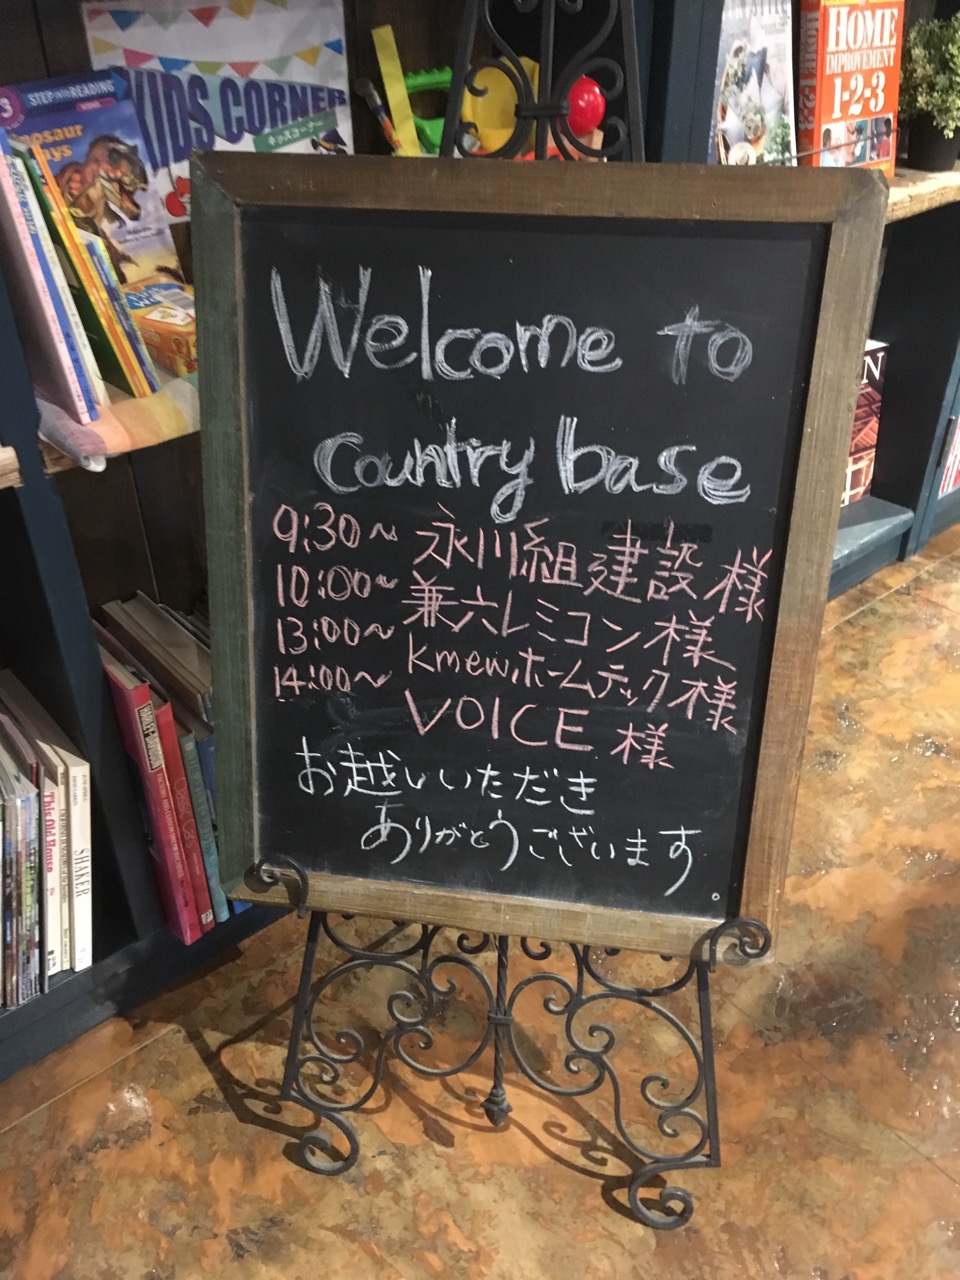 Welcome to
Country base
9:30~ 永川組建設様
10:00~ 兼六レミコン様
13:00~ kmewホームテック様
14:00~ VOICE 様
お越しいただき
ありがとうございます。
KIDS CORNER
キッズコーナー
3
STEP INTO READING
Dinosaur
Days
HOME
IMPROVEMENT
1-2-3
This Old House
SHAKER
HARLEY-DAVIDSON